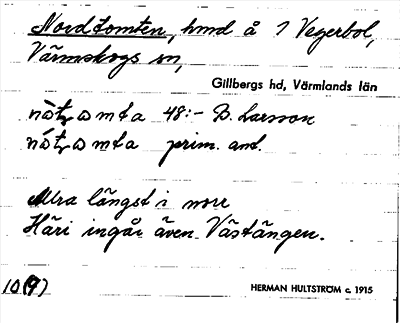 Nordtomten, hmd å 7 Vegerbol,
Värmskogs sn,
Gillbergs hd, Värmlands län
48:- B. Larsson
prim. ant.
Allra längst i norr
Häri ingår även Västängen.
10(9)
HERMAN HULTSTRÖM c. 1915